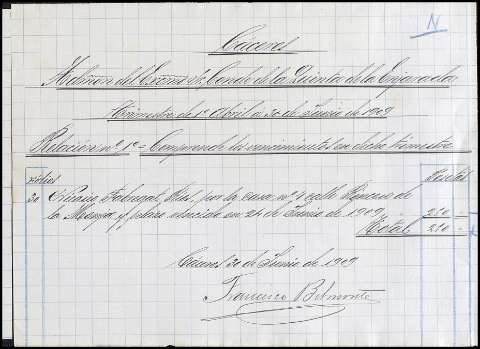 N
Cáceres
Admón del Excmo Sr. Conde de la Quinta de la Enjarada
Trimestre de 1º Abril a 30 de Junio de 1909
Relación nº 1º = Comprende los vencimientos en dicho trimestre
Folios Pesetas
30 por la casa nº 7 calle de
la y vencido en 24 de Junio de 1909 250
Total 250
Cáceres 30 de Junio de 1909
Francisco Belmonte